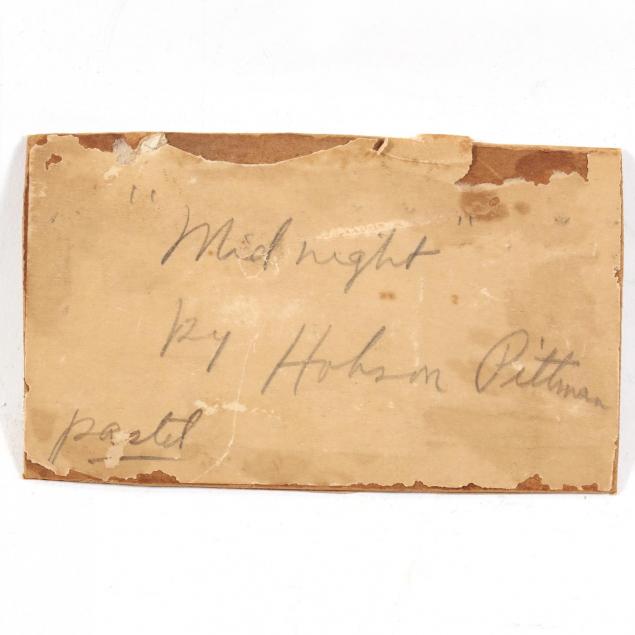 "Midnight"
by Hobson Pittman
pastel